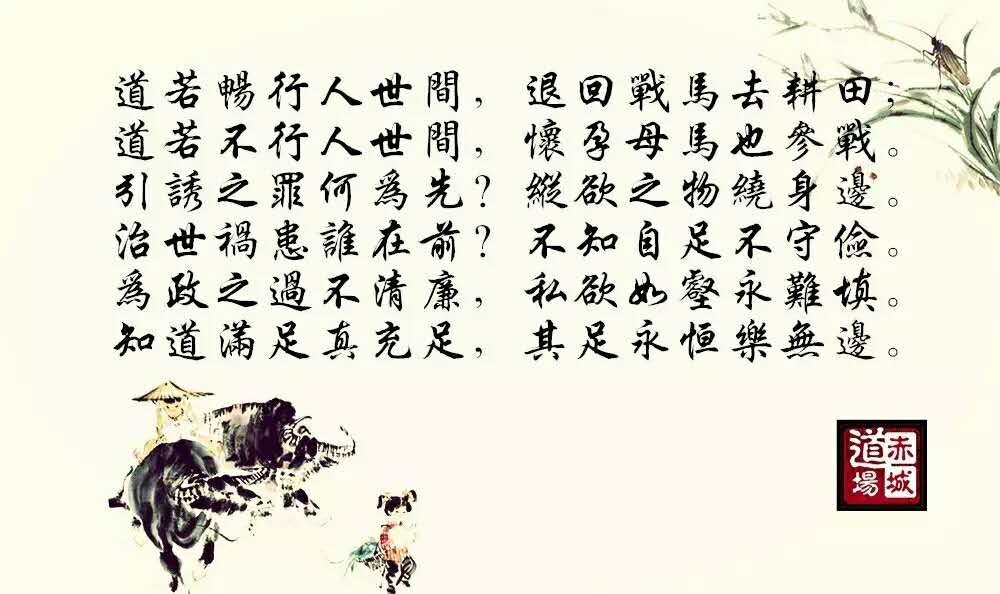 道若暢行人世間，退回戰馬去耕田；
道若不行人世間，懷孕母馬也參戰。
引誘之罪何為先？縱欲之物繞身邊。
治世禍患誰在前？不知自足不守儉。
為政之過不清廉，私欲如壑永難填。
知道滿足真充足，其足永恒樂無邊。
赤城
道場